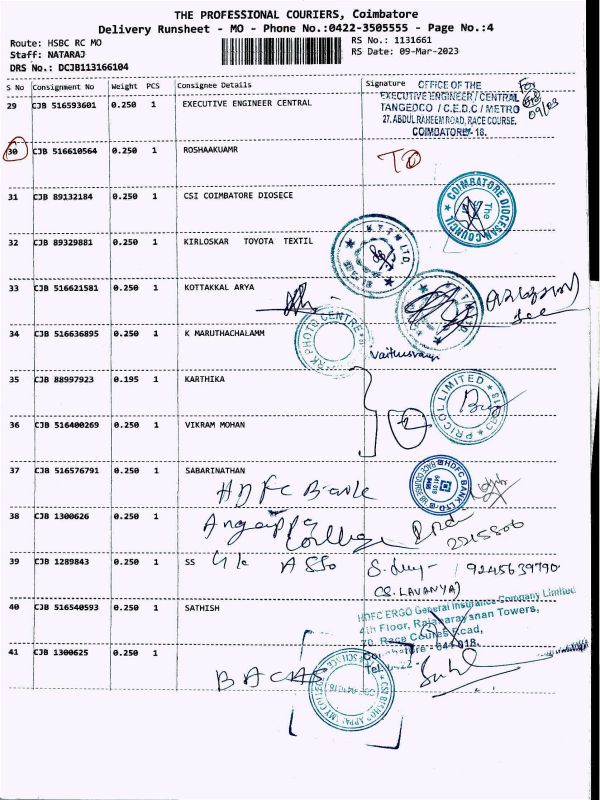 THE PROFESSIONAL COURIERS, Coimbatore
Delivery Runsheet - MO - Phone No.:0422-3505555 - Page No.:4
Route: HSBC RC MO
RS No.: 1131661
Staff: NATARAJ
RS Date: 09-Mar-2023
DRS No.: DCJB113166104
S No Consignment No Weight PCS Consignee Details Signature
29 CJB 516593601 0.250 1 EXECUTIVE ENGINEER CENTRAL
OFFICE OF THE
EXECUTIVE ENGINEER / CENTRAL
TANGEDCO / C.E.D.C / METRO
27, ABDUL RAHEEM ROAD, RACE COURSE,
COIMBATORE - 18.
For
09/03
30 CJB 516610564 0.250 1 ROSHAAKUAMR
TO
31 CJB 89132184 0.250 1 CSI COIMBATORE DIOSECE
The COIMBATORE DIOCESAN COUNCIL
32 CJB 89329881 0.250 1 KIRLOSKAR TOYOTA TEXTIL
K.T.T.M LTD.
33 CJB 516621581 0.250 1 KOTTAKKAL ARYA
34 CJB 516636895 0.250 1 K MARUTHACHALAMM
PHOTO CENTRE
35 CJB 88997923 0.195 1 KARTHIKA
PRICOL LIMITED
36 CJB 516400269 0.250 1 VIKRAM MOHAN
37 CJB 516576791 0.250 1 SABARINATHAN
HDFC Bank
HDFC BANK LTD
38 CJB 1300626 0.250 1
Angappa
College
2215806
39 CJB 1289843 0.250 1 SS
ASSO
9245639790
(S. LAVANYA)
40 CJB 516540593 0.250 1 SATHISH
HDFC ERGO General Insurance Company Limited
4th Floor, Rajanarayanan Towers,
70, Race Course Road,
Coimbatore - 641 018.
41 CJB 1300625 0.250 1
BACAS
CSI BISHOP APPASAMY COLLEGE